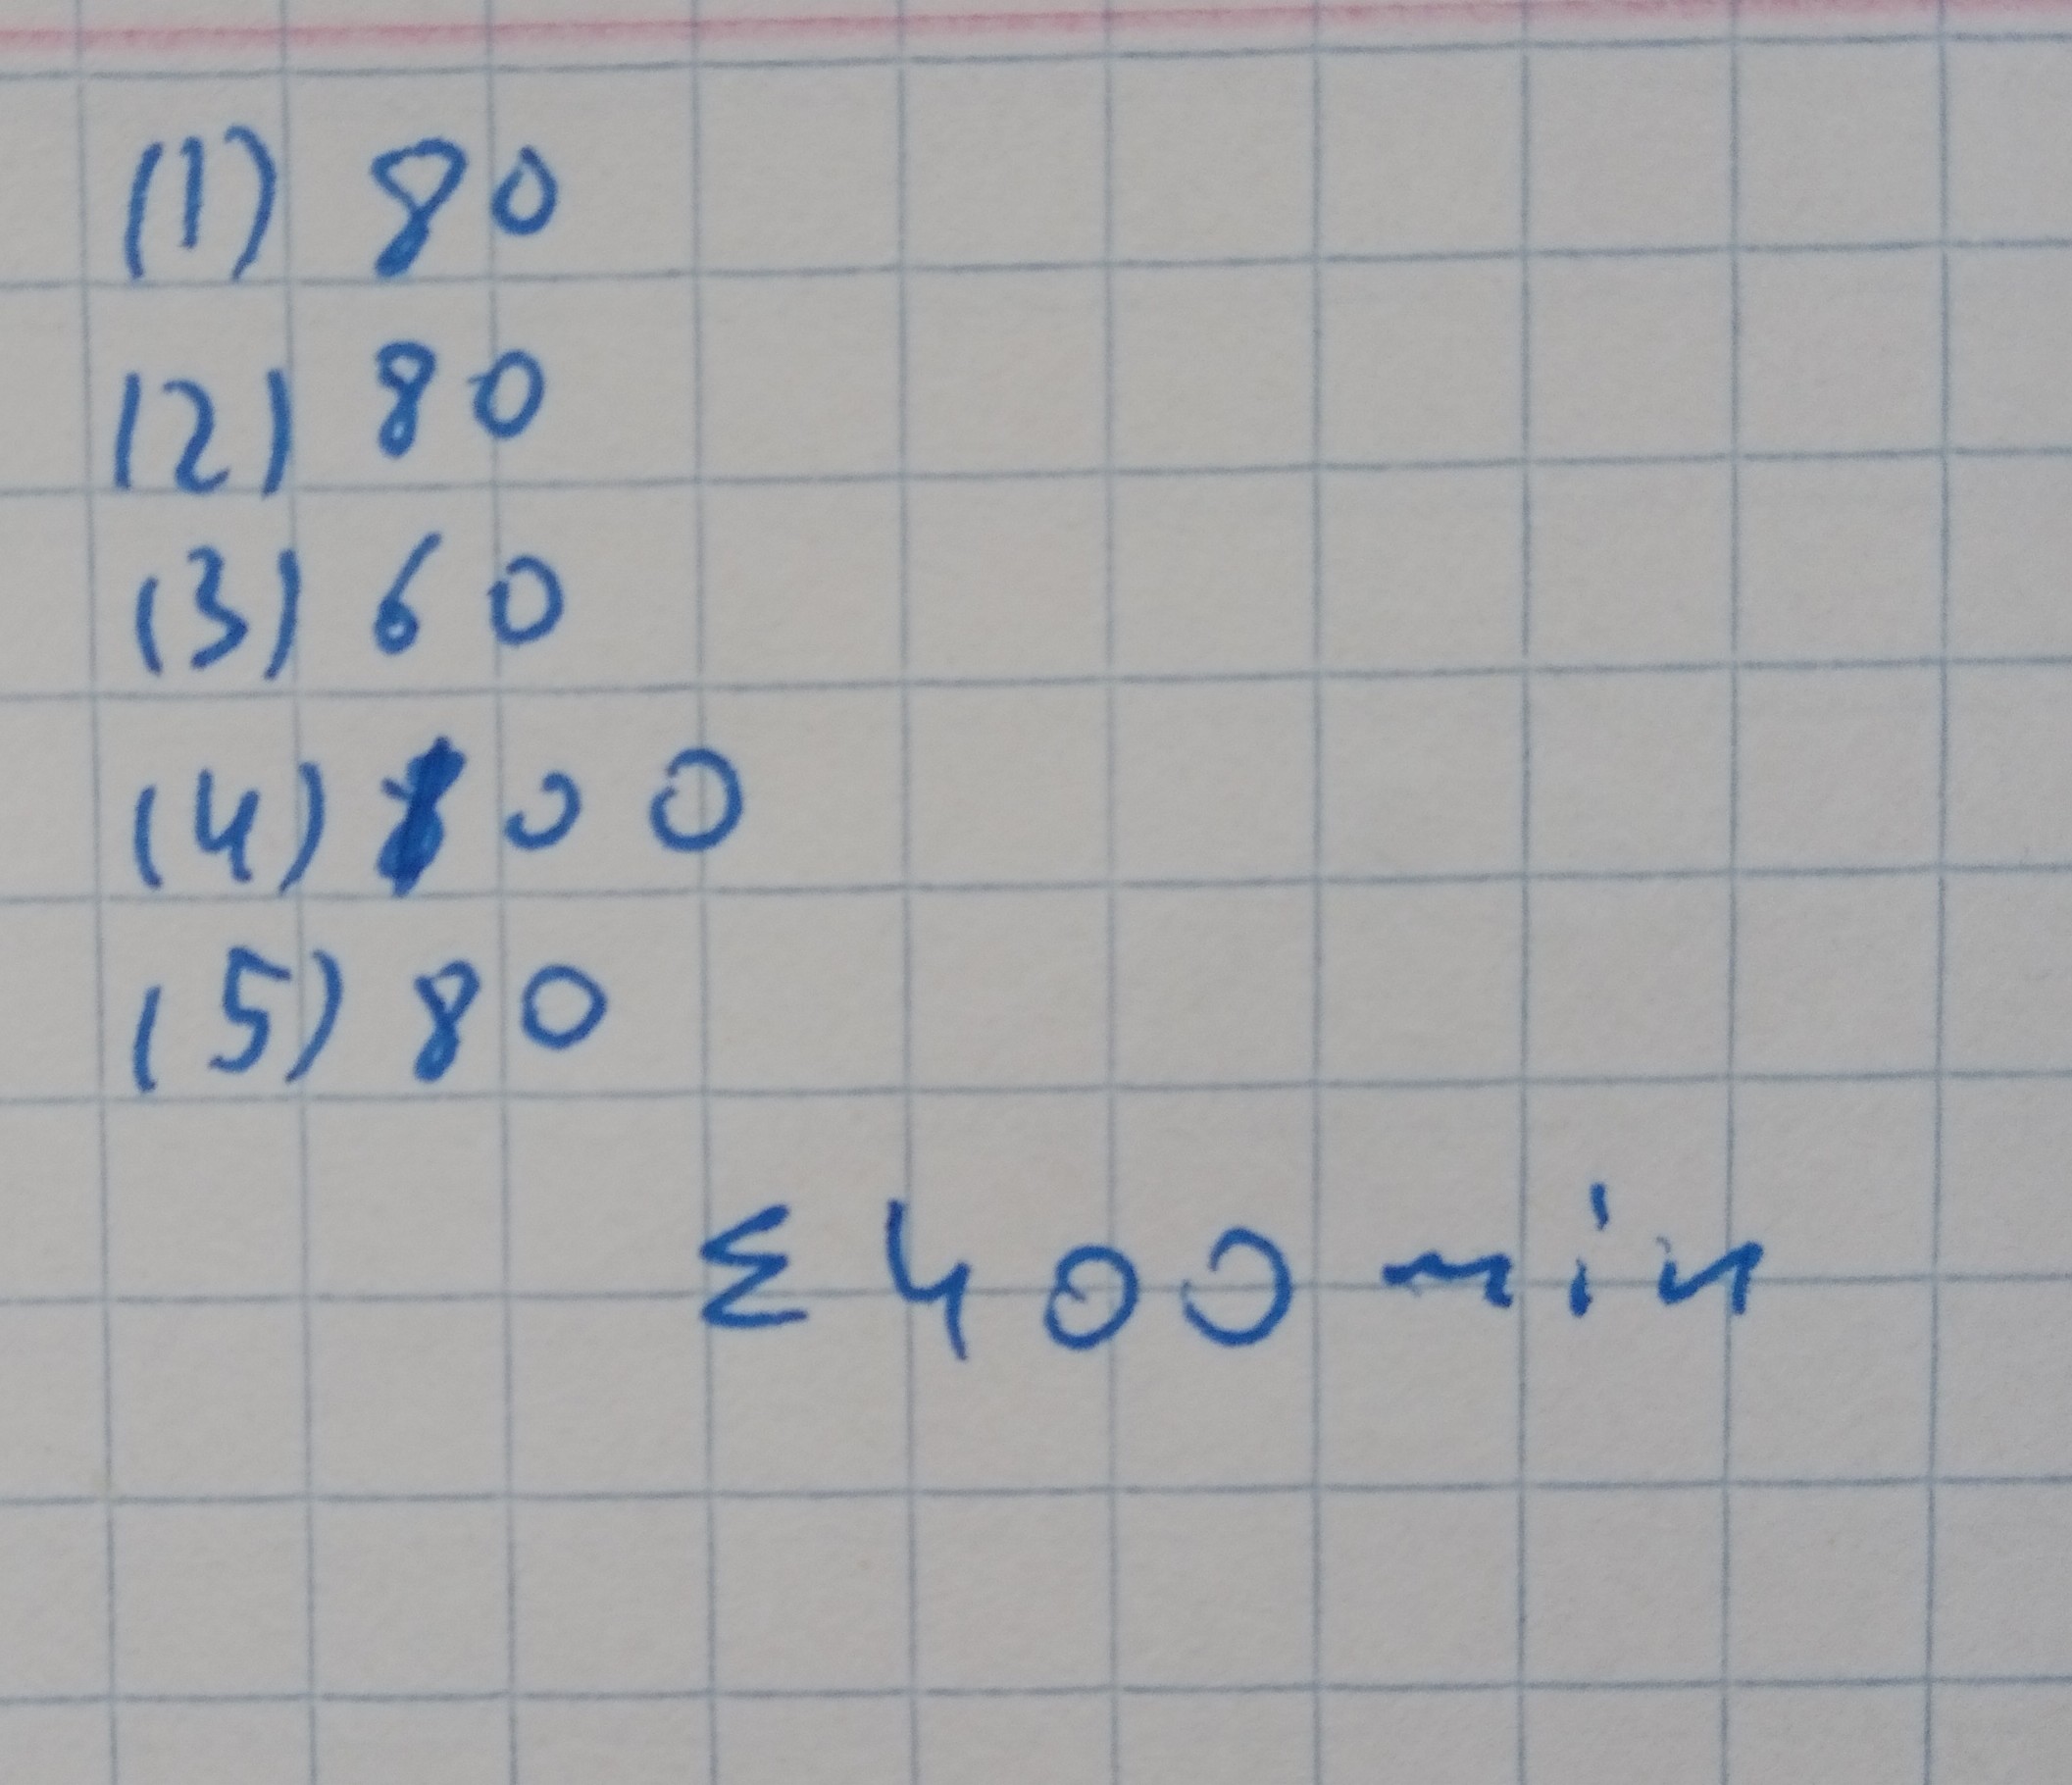 (1) 80
(2) 80
(3) 60
(4) 100
(5) 80
Σ 400 min